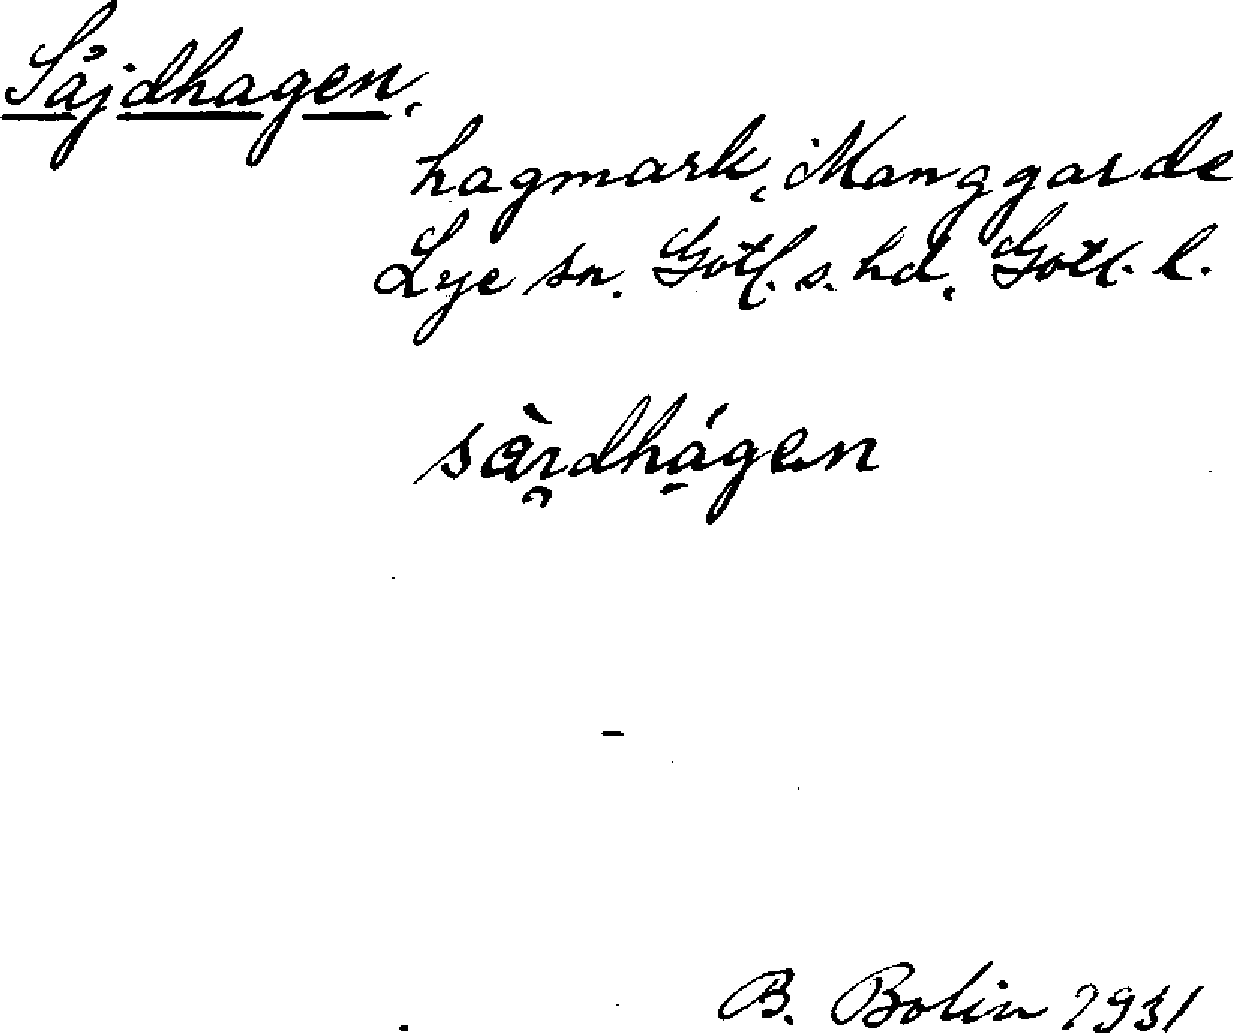 Såjdhagen.
hagmark, Manggarde
Lye sn. Gotl. s. hd. Gotl. l.
B. Bolin 1931